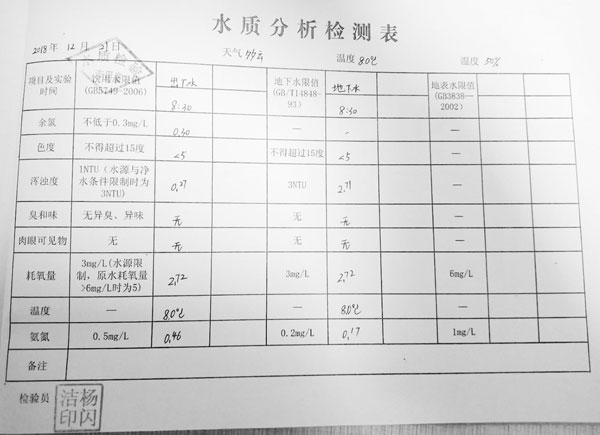 水质分析检测表
2018年 12月 21日
天气 多云 温度 8.0℃ 湿度 50%
项目及实验时间 饮用水限值(GB5749-2006) 出厂水 8:30 地下水限值(GB/T14848-93) 地下水 8:30 地表水限值(GB3838—2002)
余氯 不低于0.3mg/L 0.30 — - —
色度 不得超过15度 <5 不得超过15度 <5 —
浑浊度 1NTU(水源与净水条件限制时为3NTU) 0.27 3NTU 2.71 —
臭和味 无异臭、异味 无 无 无 —
肉眼可见物 无 无 无 无 —
耗氧量 3mg/L(水源限制，原水耗氧量>6mg/L时为5) 2.72 3mg/L 2.72 6mg/L
温度 — 8.0℃ — 8.0℃ —
氨氮 0.5mg/L 0.46 0.2mg/L 0.17 1mg/L
备注
检验员 杨闪洁印